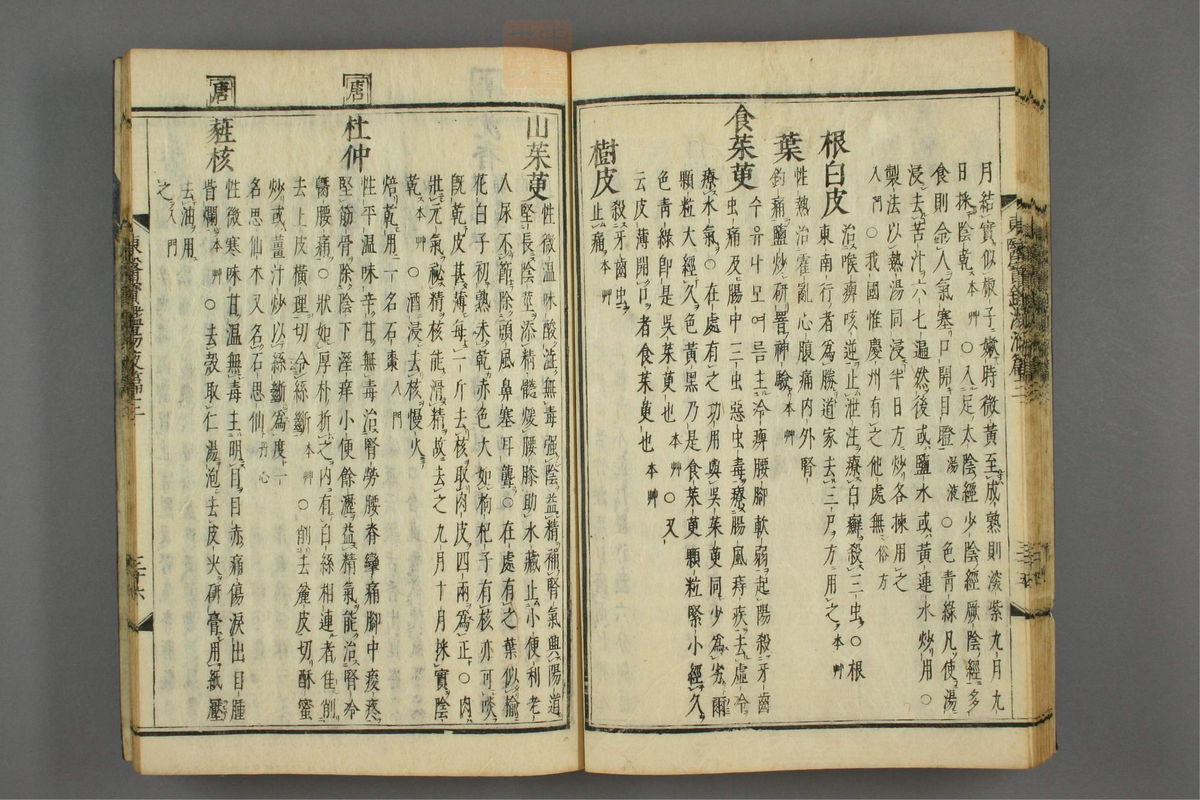 月結實似椒子嫩時微黃至成熟則深紫九月九
日採陰乾本艸○入足太陰經少陰經厥陰經多
食則令人氣塞口開目瞪湯液○色青綠凡使湯
浸去苦汁六七遍然後或鹽水或黃連水炒用○
製法以熱湯同浸半日方炒各揀用之
入門○我國惟慶州有之他處無俗方
根白皮治喉痺咳逆止泄注療白癬殺三虫○根
東南行者為勝道家去三尺方用之本艸
葉性熱治霍亂心腹痛內外腎
釣痛鹽炒研罯神驗本艸
食茱萸수유나모여름主冷痺腰腳軟弱起陽殺牙齒
虫痛及腸中三虫惡虫毒療腸風痔疾去虛冷
療水氣○在處有之功用與吳茱萸同少為劣爾
顆粒大經久色黃黑乃是食茱萸顆粒緊小經久
色青綠卽是吳茱萸也本艸○又
云皮薄開口者食茱萸也本艸
樹皮殺牙齒虫
止痛本艸
山茱萸性微溫味酸澁無毒強陰益精補腎氣興陽道
堅長陰莖添精髓煖腰膝助水藏止小便利老
人尿不節除頭風鼻塞耳聾○在處有之葉似楡
花白子初熟未乾赤色大如枸杞子有核亦可啖
旣乾皮甚薄每一斤去核取肉皮四兩為正○肉
壯元氣祕精核能滑精故去之九月十月採實陰
乾本艸○酒浸去核慢火
焙乾用一名石棗入門
唐
杜仲性平溫味辛甘無毒治腎勞腰脊攣痛腳中痠疼
堅筋骨除陰下淫痒小便餘瀝益精氣能治腎冷
䐴腰痛○狀如厚朴折之內有白絲相連者佳削
去上皮橫理切令絲斷本艸○削去麁皮切酥蜜
炒或薑汁炒以絲斷為度一
名思仙木又名石思仙丹心
唐
蕤核性微寒味甘溫無毒主明目目赤痛傷淚出目腫
眥爛本艸○去殼取仁湯泡去皮尖研膏用紙壓
去油用
之入門
東醫寶鑑湯液篇三
東醫寶鑑湯液篇三
三十六